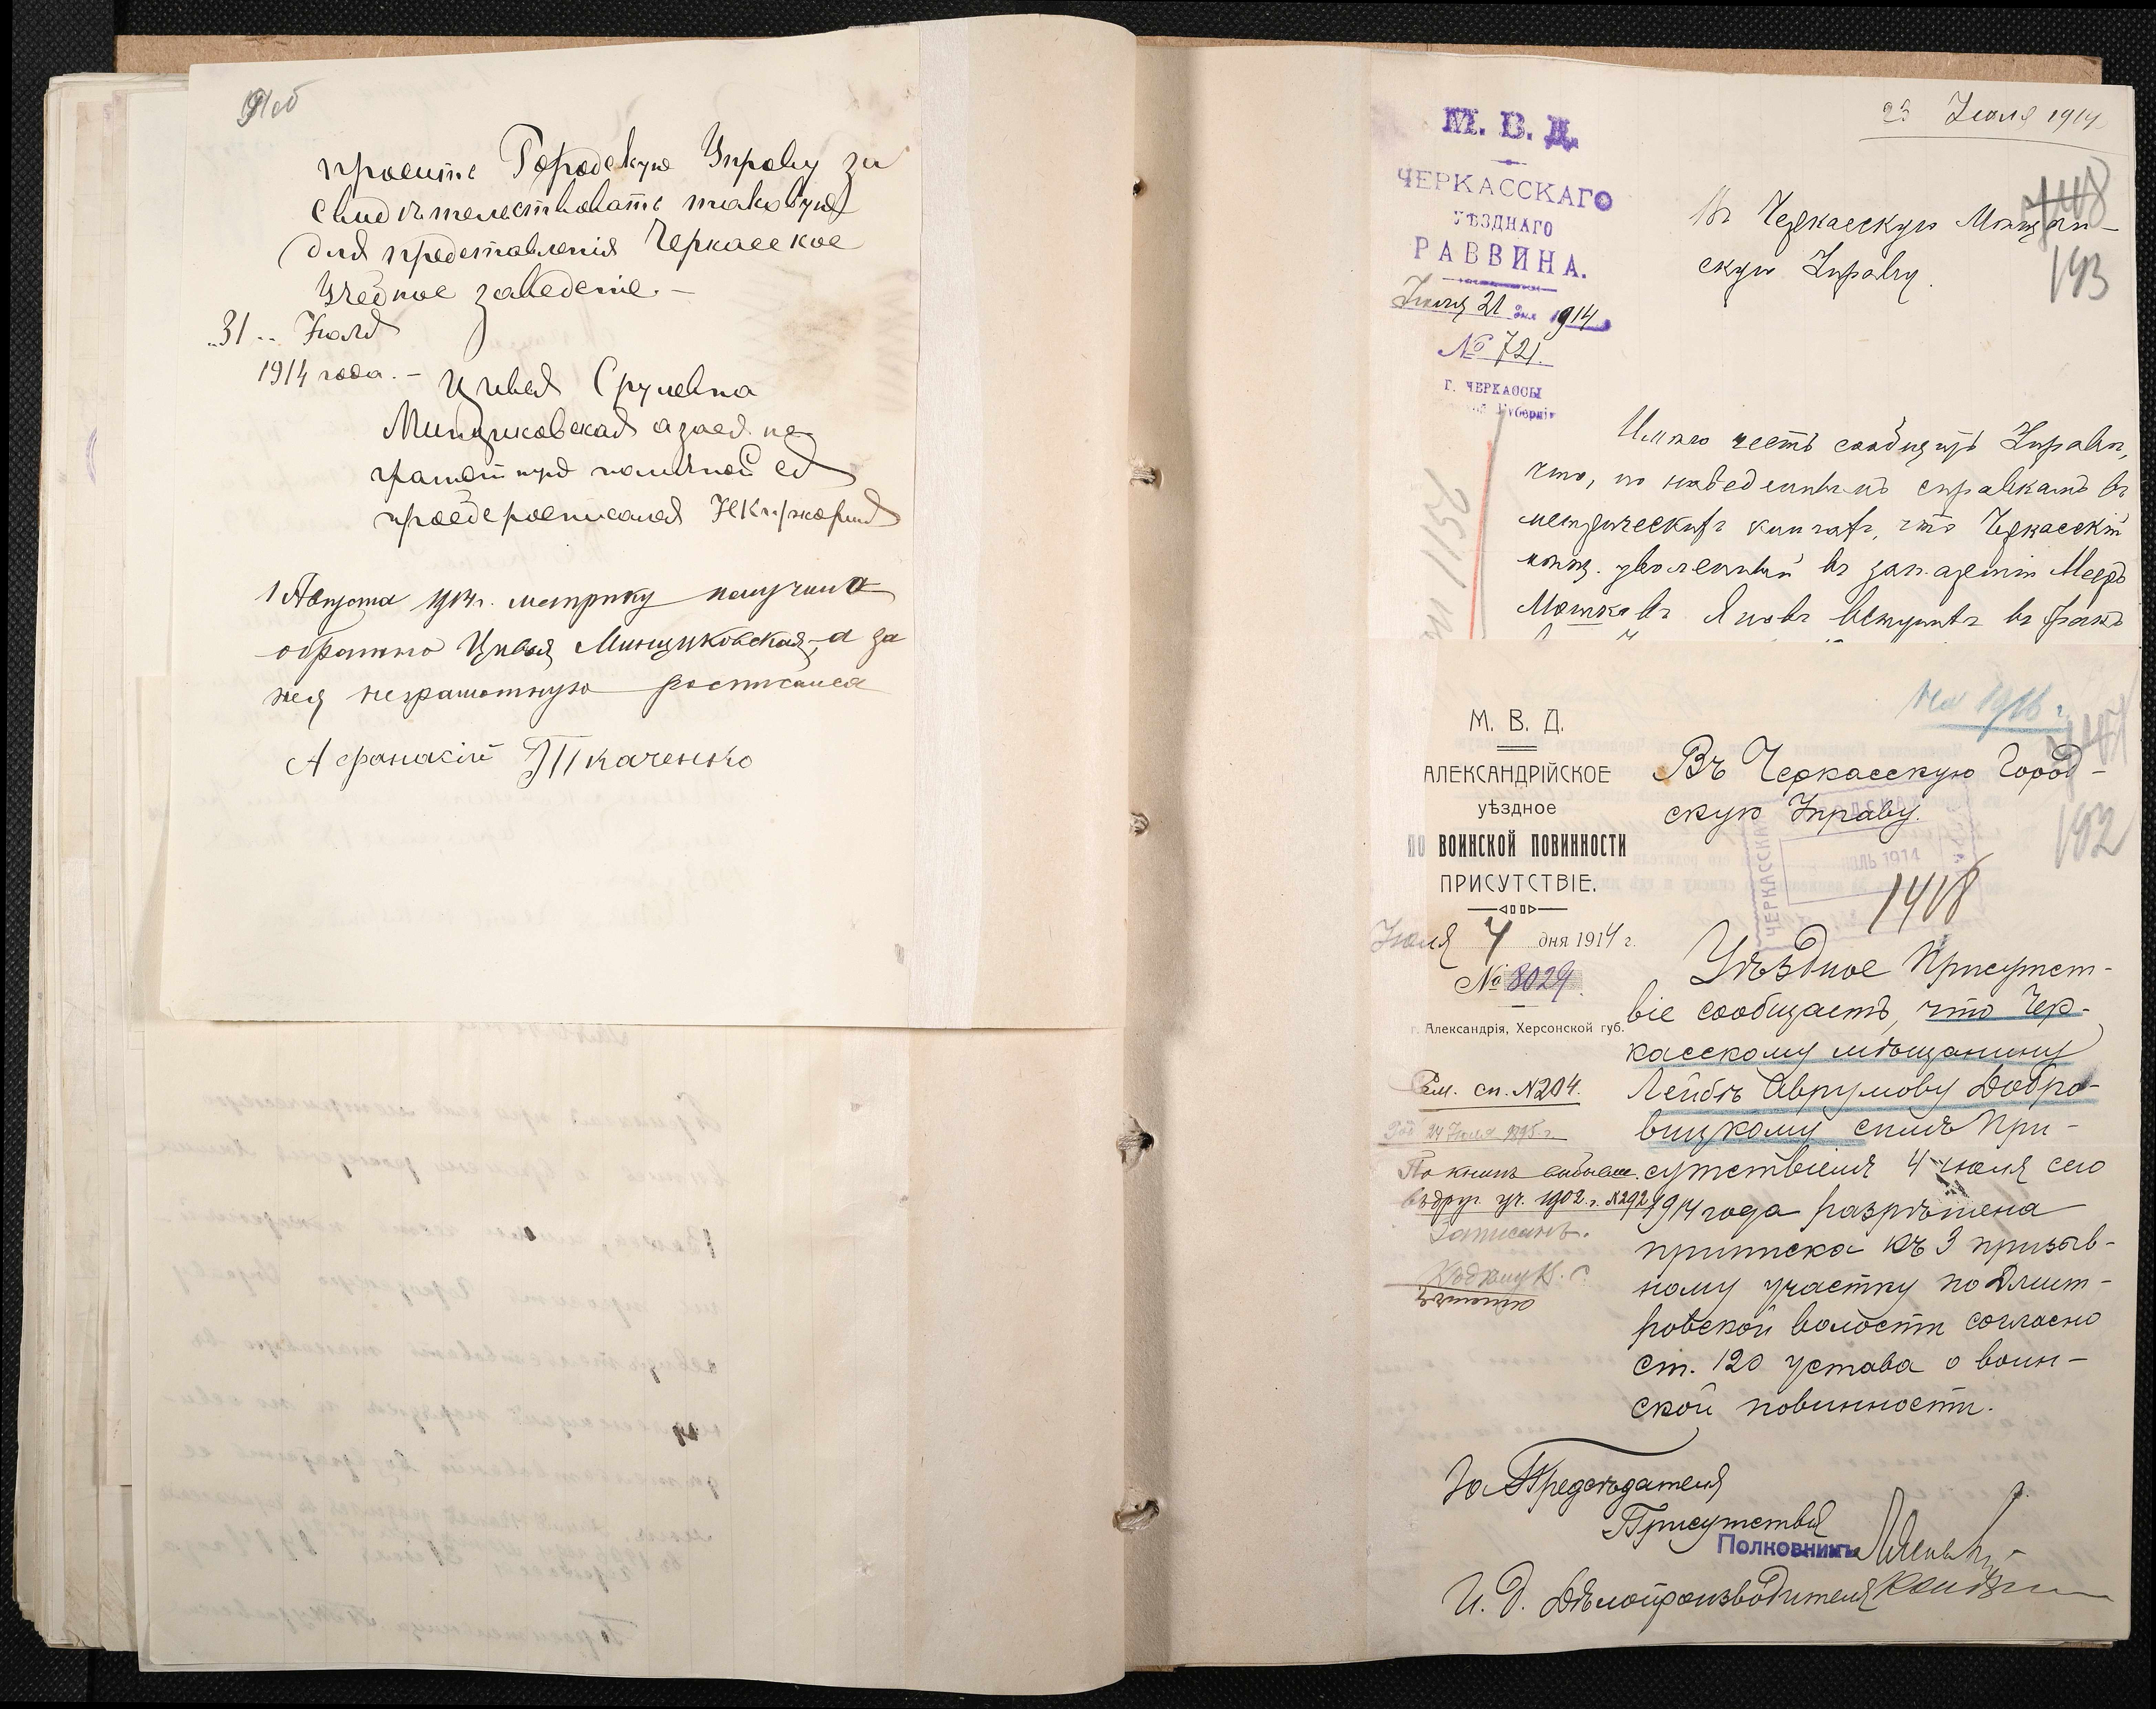 просить Городскую Управу за
свидѣтельствовать таковую
для представленія Черкасское
Учебное заведеніе. –
„31„ Июля
1914 года. –
Цивья Срулевна
Минциковская а за ея не
грамотную по личной ея
прозбе росписался
1 Августа 1914 г. метрику получила
обратно Цивья Минциковская, а за
нея неграмотную росписался
Афанасій Ткаченко
М. В. Д.
ЧЕРКАССКАГО
УѢЗДНАГО
РАВВИНА.
Іюля 21 дня 1914
№ 721.
Г. ЧЕРКАССЫ
губерніи
23 Іюля 1914
148
193
Въ Черкасскую Мѣщан–
скую Управу.
Имѣю честь сообщить Управѣ,
что, по наведеннымъ справкамъ въ
метрическихъ книгахъ, что Черкасскій
мѣщ. уволенный въ зап. арміи Мееръ
Мошковъ вступилъ въ бракъ
На 1916 г.
147
192
М. В. Д.
АЛЕКСАНДРІЙСКОЕ
уѣздное
ПО ВОИНСКОЙ ПОВИННОСТИ
ПРИСУТСТВІЕ.
Іюля 4 дня 1914 г.
№ 8029.
г. Александрія, Херсонской губ.
Въ Черкасскую Город–
скую Управу.
ЧЕРКАССКАЯ
ІЮЛЬ 1914
1418
Уѣздное Присутст–
віе сообщаетъ, что Чер–
касскому мѣщанину
Лейбѣ Аврумову Добро–
вицкому симъ При–
сутствіемъ 4 іюля сего
1914 года разрѣшена
приписка къ 3 призыв–
ному участку по Дмит–
ровской волости согласно
ст. 120 устава о воин–
ской повинности.
Сем. сп. № 204.
Род 24 Іюля 1895 г.
По книгѣ выбывш.
въ друг. уч. 1902 г. № 292
Записанъ.
За Предсѣдателя
Присутствія
Полковникъ
И. д. Дѣлопроизводителя